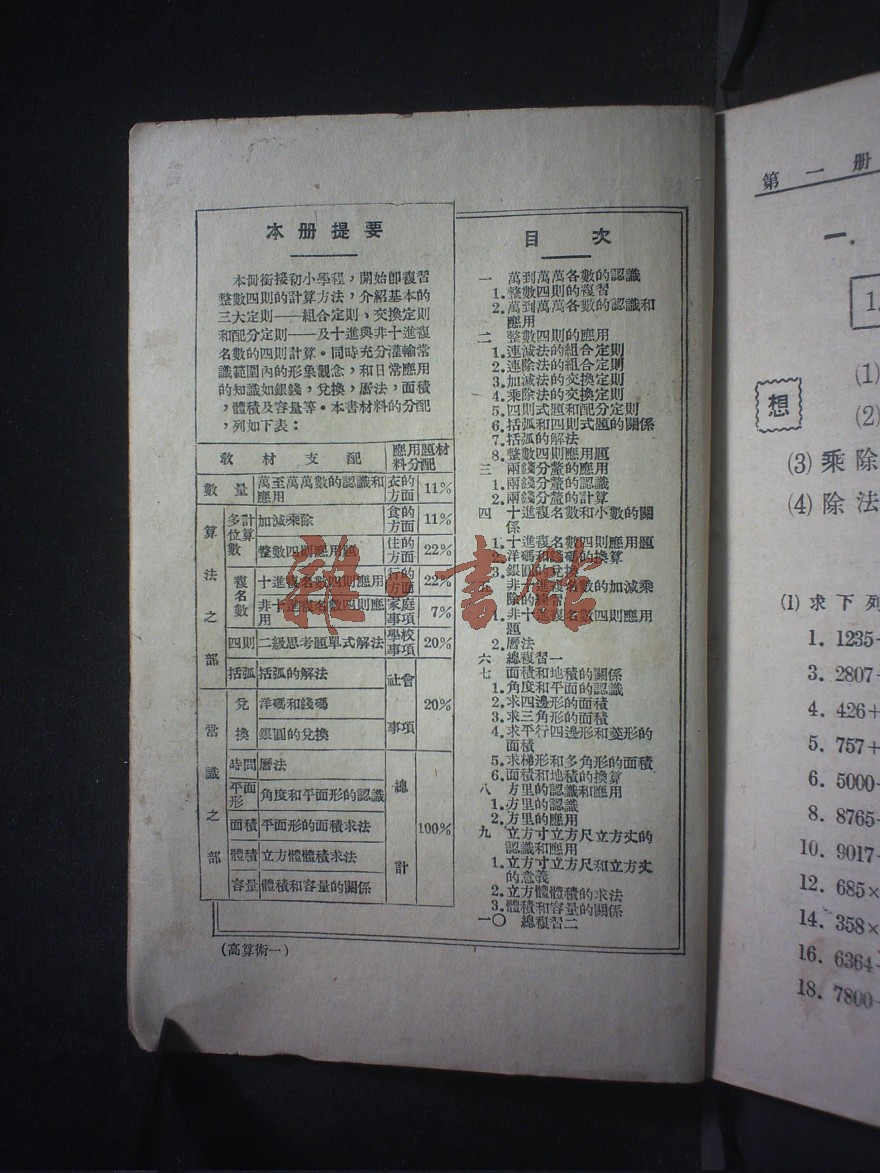 本冊提要
本冊銜接初小學程，開始即複習
整數四則的計算方法，介紹基本的
三大定則——組合定則、交換定則
和配分定則——及十進與非十進複
名數的四則計算。同時充分灌輸常
識範圍內的形象觀念，和日常應用
的知識如銀錢，兌換，曆法，面積
，體積及容量等。本書材料的分配
，列如下表：
教材支配 應用題材料分配
數量 萬至萬萬數的認識和應用 衣的方面 11%
算法之部 多位數 計算 加減乘除 食的方面 11%
整數四則應用題 住的方面 22%
複名數 十進複名數四則應用 行的方面 22%
非十進複名數四則應用 家庭事項 7%
四則 二級思考題單式解法 學校事項 20%
括弧 括弧的解法 社會事項 20%
常識之部 兌換 洋碼和錢碼
銀圓的兌換
時間 曆法 總計 100%
平面形 角度和平面形的認識
面積 平面形的面積求法
體積 立方體體積求法
容量 體積和容量的關係
(高算術一)
目次
一 萬到萬萬各數的認識
1.整數四則的複習
2.萬到萬萬各數的認識和
應用
二 整數四則的應用
1.連減法的組合定則
2.連除法的組合定則
3.加減法的交換定則
4.乘除法的交換定則
5.四則式題和配分定則
6.括弧和四則式題的關係
7.括弧的解法
8.整數四則應用題
三 兩錢分釐的應用
1.兩錢分釐的認識
2.兩錢分釐的計算
四 十進複名數和小數的關
係
1.十進複名數四則應用題
2.洋碼和錢碼的換算
3.銀圓的兌換
五 非十進複名數的加減乘
除的練習
1.非十進複名數四則應用
題
2.曆法
六 總複習一
七 面積和地積的關係
1.角度和平面的認識
2.求四邊形的面積
3.求三角形的面積
4.求平行四邊形和菱形的
面積
5.求梯形和多角形的面積
6.面積和地積的換算
八 方里的認識和應用
1.方里的認識
2.方里的應用
九 立方寸立方尺立方丈的
認識和應用
1.立方寸立方尺和立方丈
的意義
2.立方體體積的求法
3.體積和容量的關係
一〇 總複習二
雜·書館
第一冊
一.
1.
想
(1)
(2)
(3) 乘除
(4) 除法
(1) 求下列
1. 1235
3. 2807
4. 426+
5. 757+
6. 5000
8. 8765
10. 9017
12. 685×
14. 358×
16. 6364
18. 7800